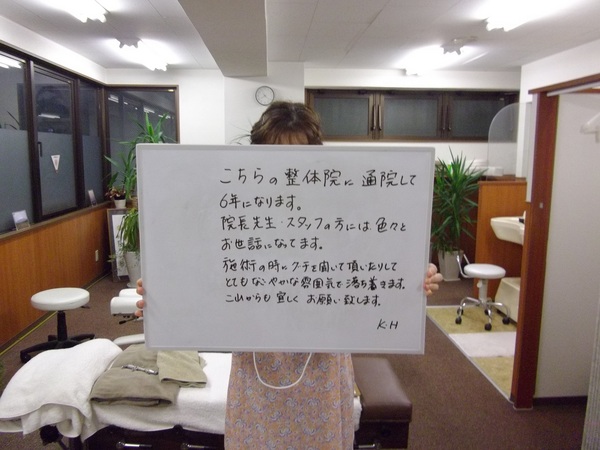 こちらの整体院に通院して
6年になります。
院長先生・スタッフの方には色々と
お世話になってます。
施術の時にグチを聞いて頂いたりして
とてもなごやかな雰囲気で落ち着きます。
これからも宜しくお願い致します。
K・H